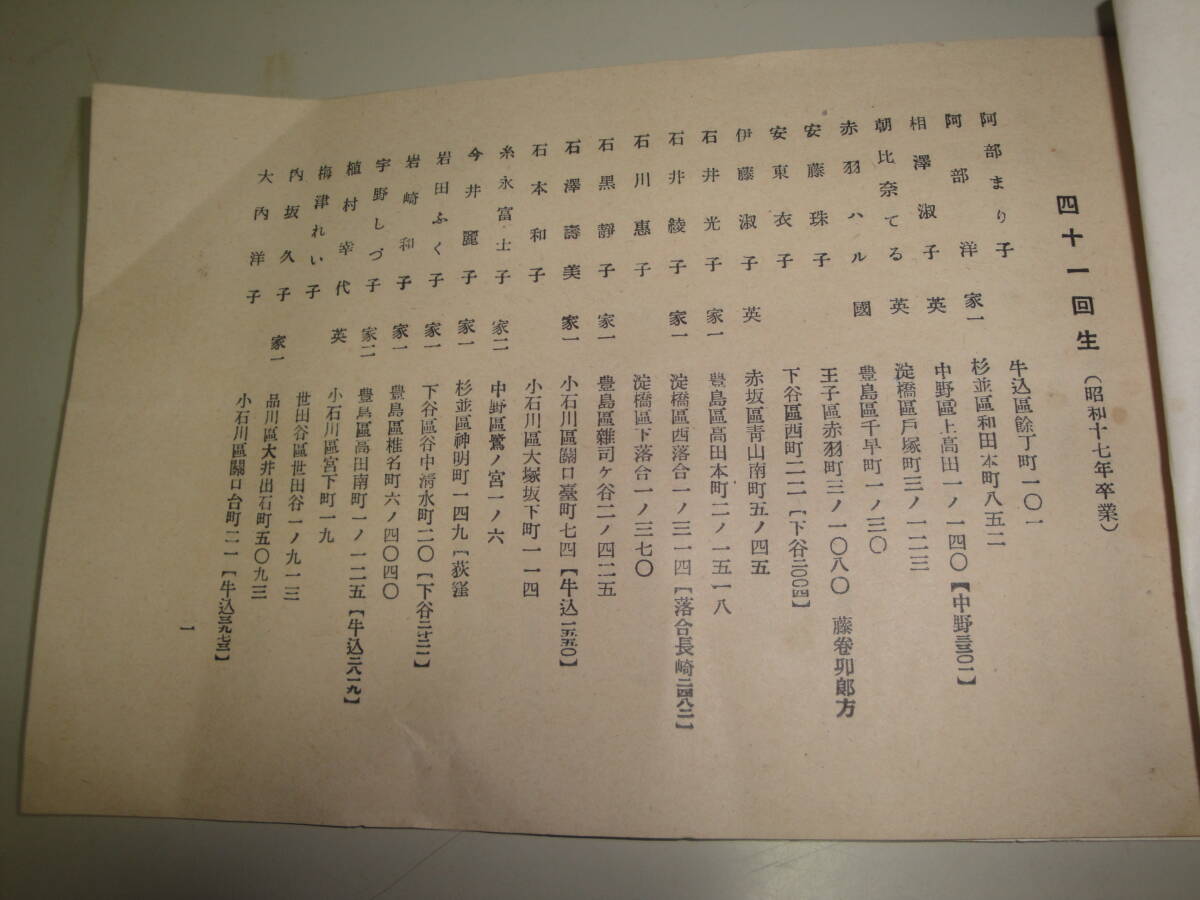 四十一回生（昭和十七年卒業）
阿部まり子 牛込區餘丁町一〇一
阿部洋子 家一 杉並區和田本町八五二
相澤淑子 英 中野區上高田一ノ一四〇【中野三三〇一】
朝比奈てる 英 淀橋區戸塚町三ノ一二三
赤羽ハル 國 豊島區千早町一ノ三〇
安藤珠子 王子區赤羽町三ノ一〇八〇 藤卷卯郎方
安東衣子 下谷區西町二二【下谷二〇〇四】
伊藤淑子 英 赤坂區靑山南町五ノ四五
石井光子 家一 豊島區高田本町二ノ一五一八
石井綾子 家一 淀橋區西落合一ノ三一四【落合長崎二四八二】
石川惠子 淀橋區下落合一ノ三七〇
石黒靜子 家一 豊島區雜司ケ谷二ノ四二五
石澤壽美 家一 小石川區關口臺町七四【牛込一五五〇】
石本和子 小石川區大塚坂下町一一四
糸永富士子 家二 中野區鷺ノ宮一ノ六
今井麗子 家一 杉並區神明町一四九【荻窪
岩田ふく子 家一 下谷區谷中淸水町二〇【下谷
岩崎和子 家一 豊島區椎名町六ノ四〇四〇
宇野しづ子 家二 豊島區高田南町一ノ一二五【牛込二八一九】
植村幸代 英 小石川區宮下町一九
梅津れい子 世田谷區世田谷一ノ九一三
內坂久子 家一 品川區大井出石町五〇九三
大內洋子 小石川區關口台町二一【牛込三九七三】
一